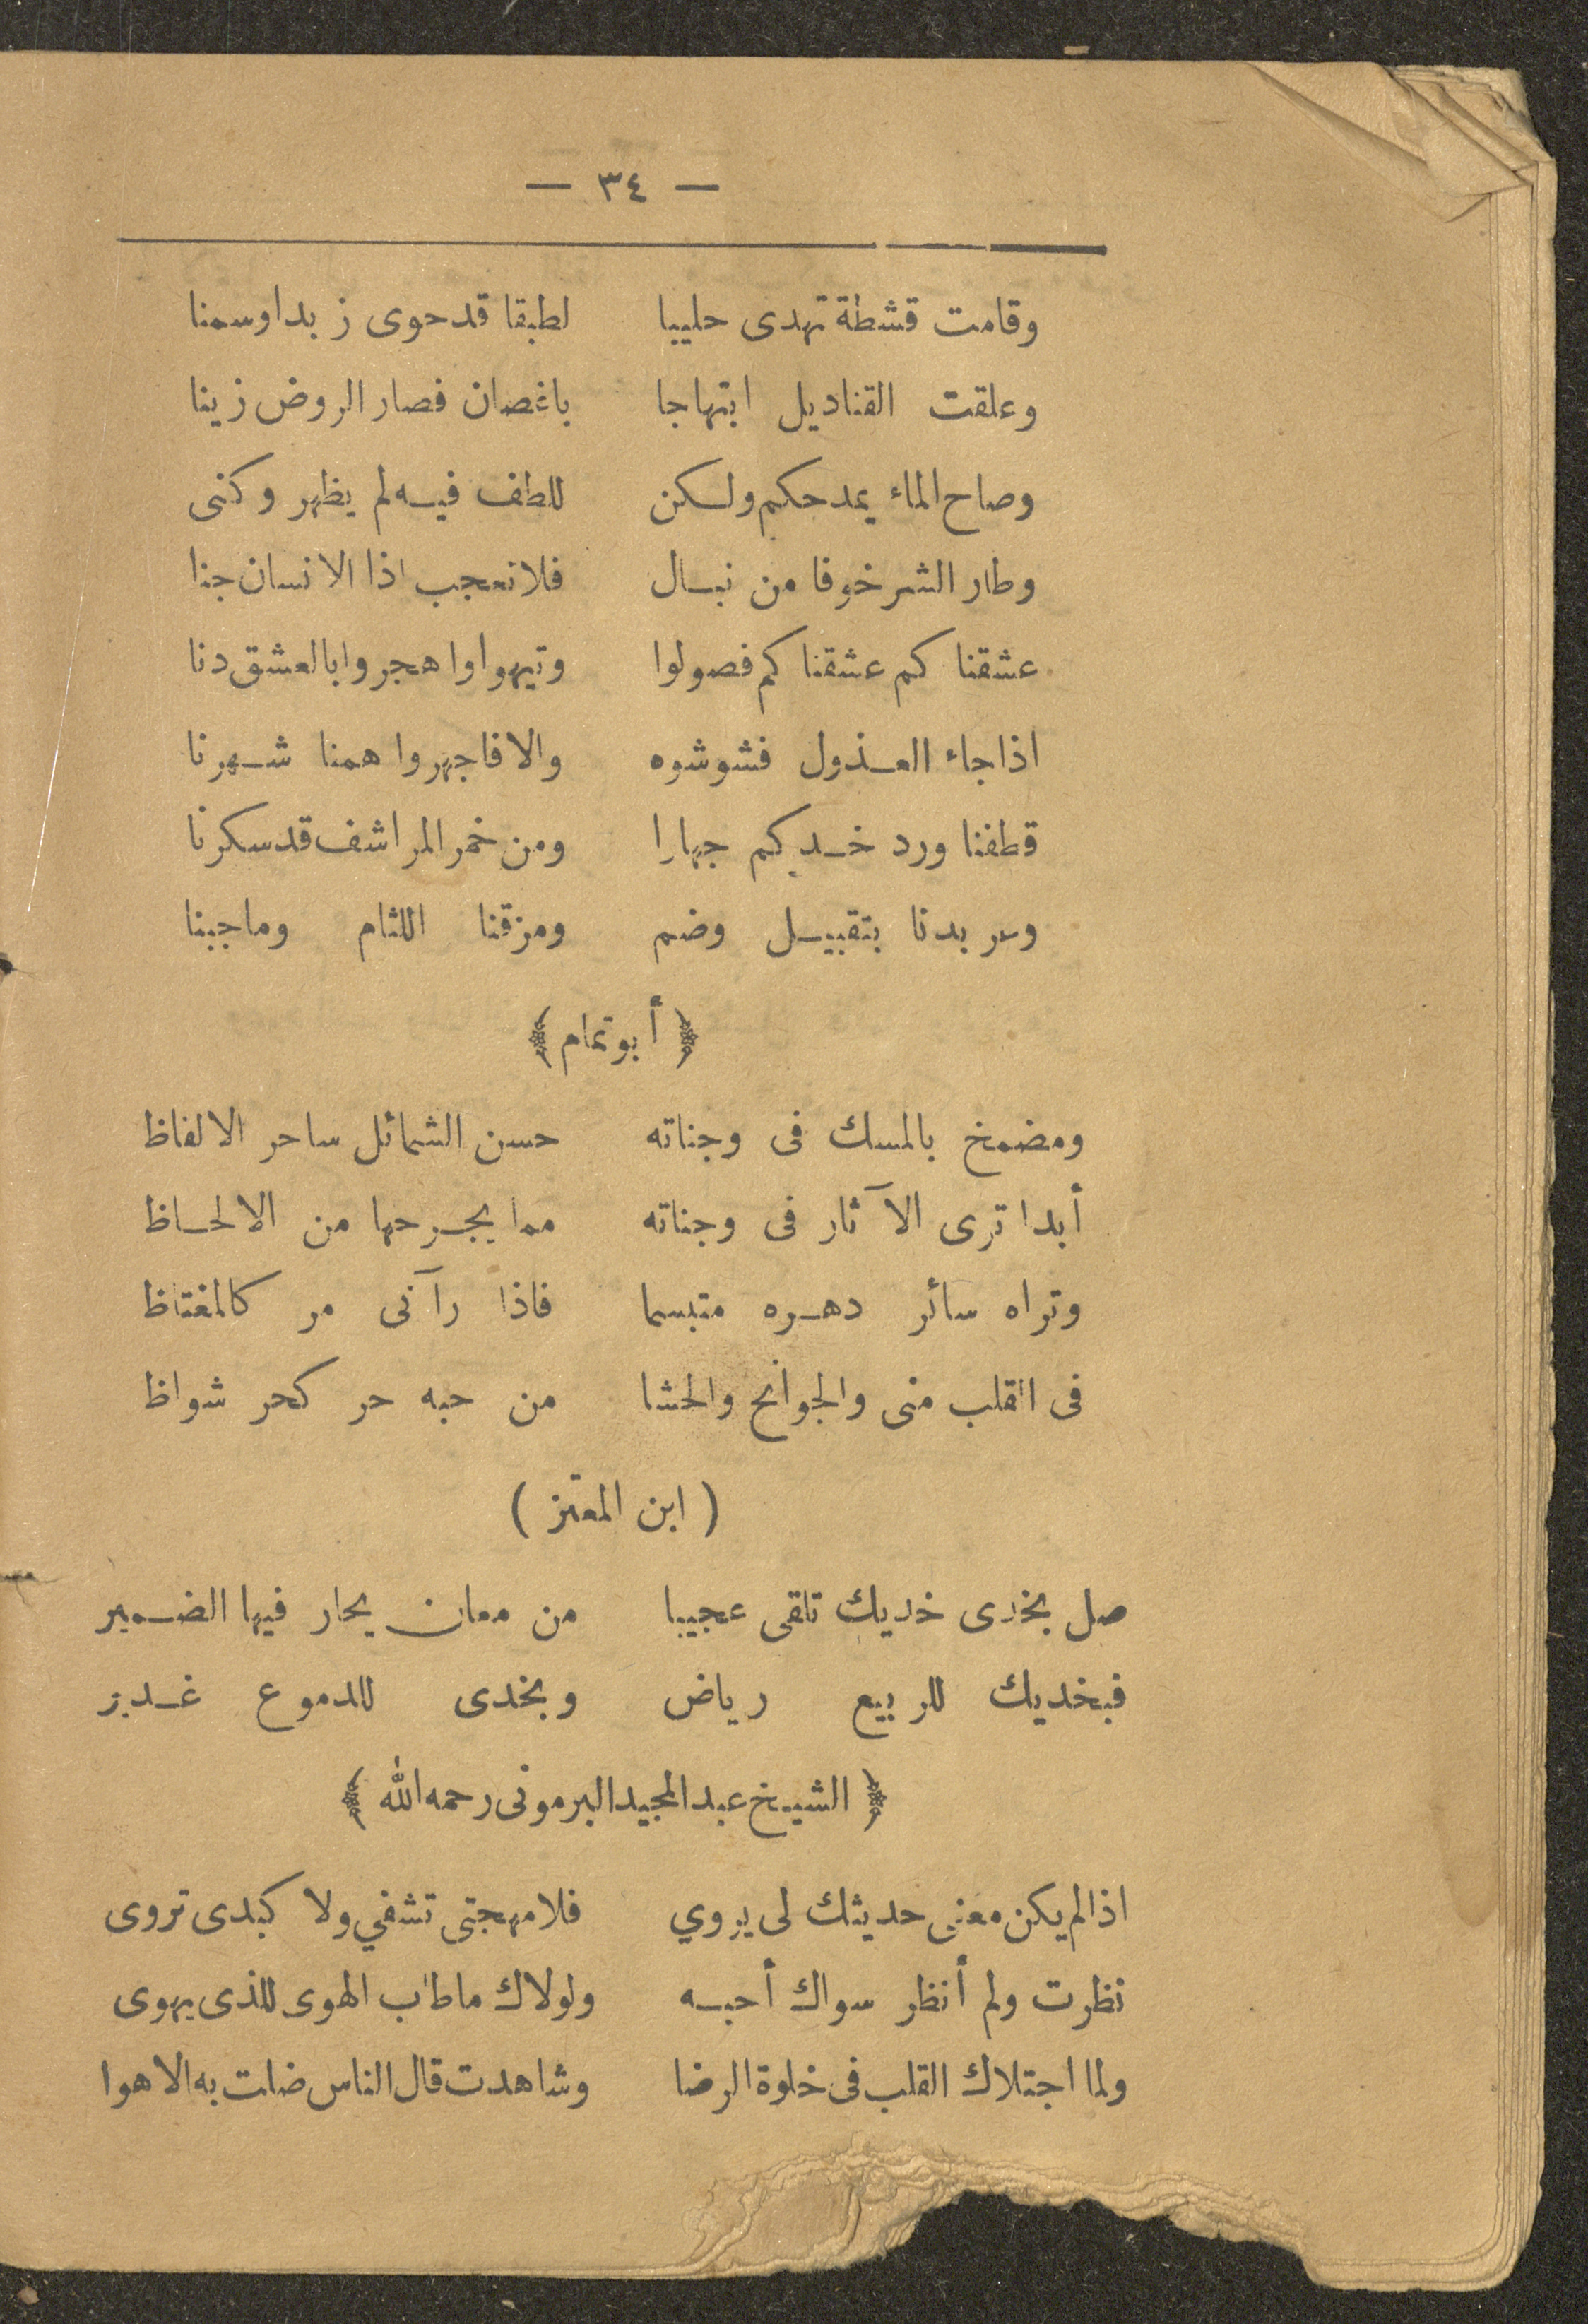 — ٣٤ —
وقامت قشطة تهدى حليبا لطبقا قد حوى زبدا وسمنا
وعلقت القناديل ابتهاجا باغصان فصار الروض زينا
وصاح الماء يمدحكم ولكن للطف فيه لم يظهر وكنى
وطار الشر خوفا من نبال فلا نعجب اذا الانسان جنا
عشقنا كم عشقنا كم فصولوا وتيهوا واهجروا بالعشق دنا
اذا جاء العذول فشوشوه والا فاجهروا همنا شهرنا
قطفنا ورد خدكم جهارا ومن خمر المراشف قد سكرنا
وعربدنا بتقبيل وضم ومزقنا اللثام وما جبنا
﴿ أبو تمام ﴾
ومضمخ بالمسك فى وجناته حسن الشمائل ساحر الالفاظ
أبدا ترى الآثار فى وجناته مما يجرحها من الالحاظ
وتراه سائر دهره متبسما فاذا رآنى مر كالمغتاظ
فى القلب منى والجوانح والحشا من حبه حر كحر شواظ
( ابن المعتز )
صل بخدى خديك تلقى عجيبا من معان يحار فيها الضمير
فبخديك للربيع رياض وبخدى للدموع غدير
﴿ الشيخ عبد المجيد البرمونى رحمه الله ﴾
اذا لم يكن معنى حديثك لى يروي فلا مهجتى تشفي ولا كبدى تروى
نظرت ولم أنظر سواك أحبه ولولاك ما طاب الهوى للذى يهوى
ولما اجتلاك القلب فى خلوة الرضا وشاهدت قال الناس ضلت به الاهوا